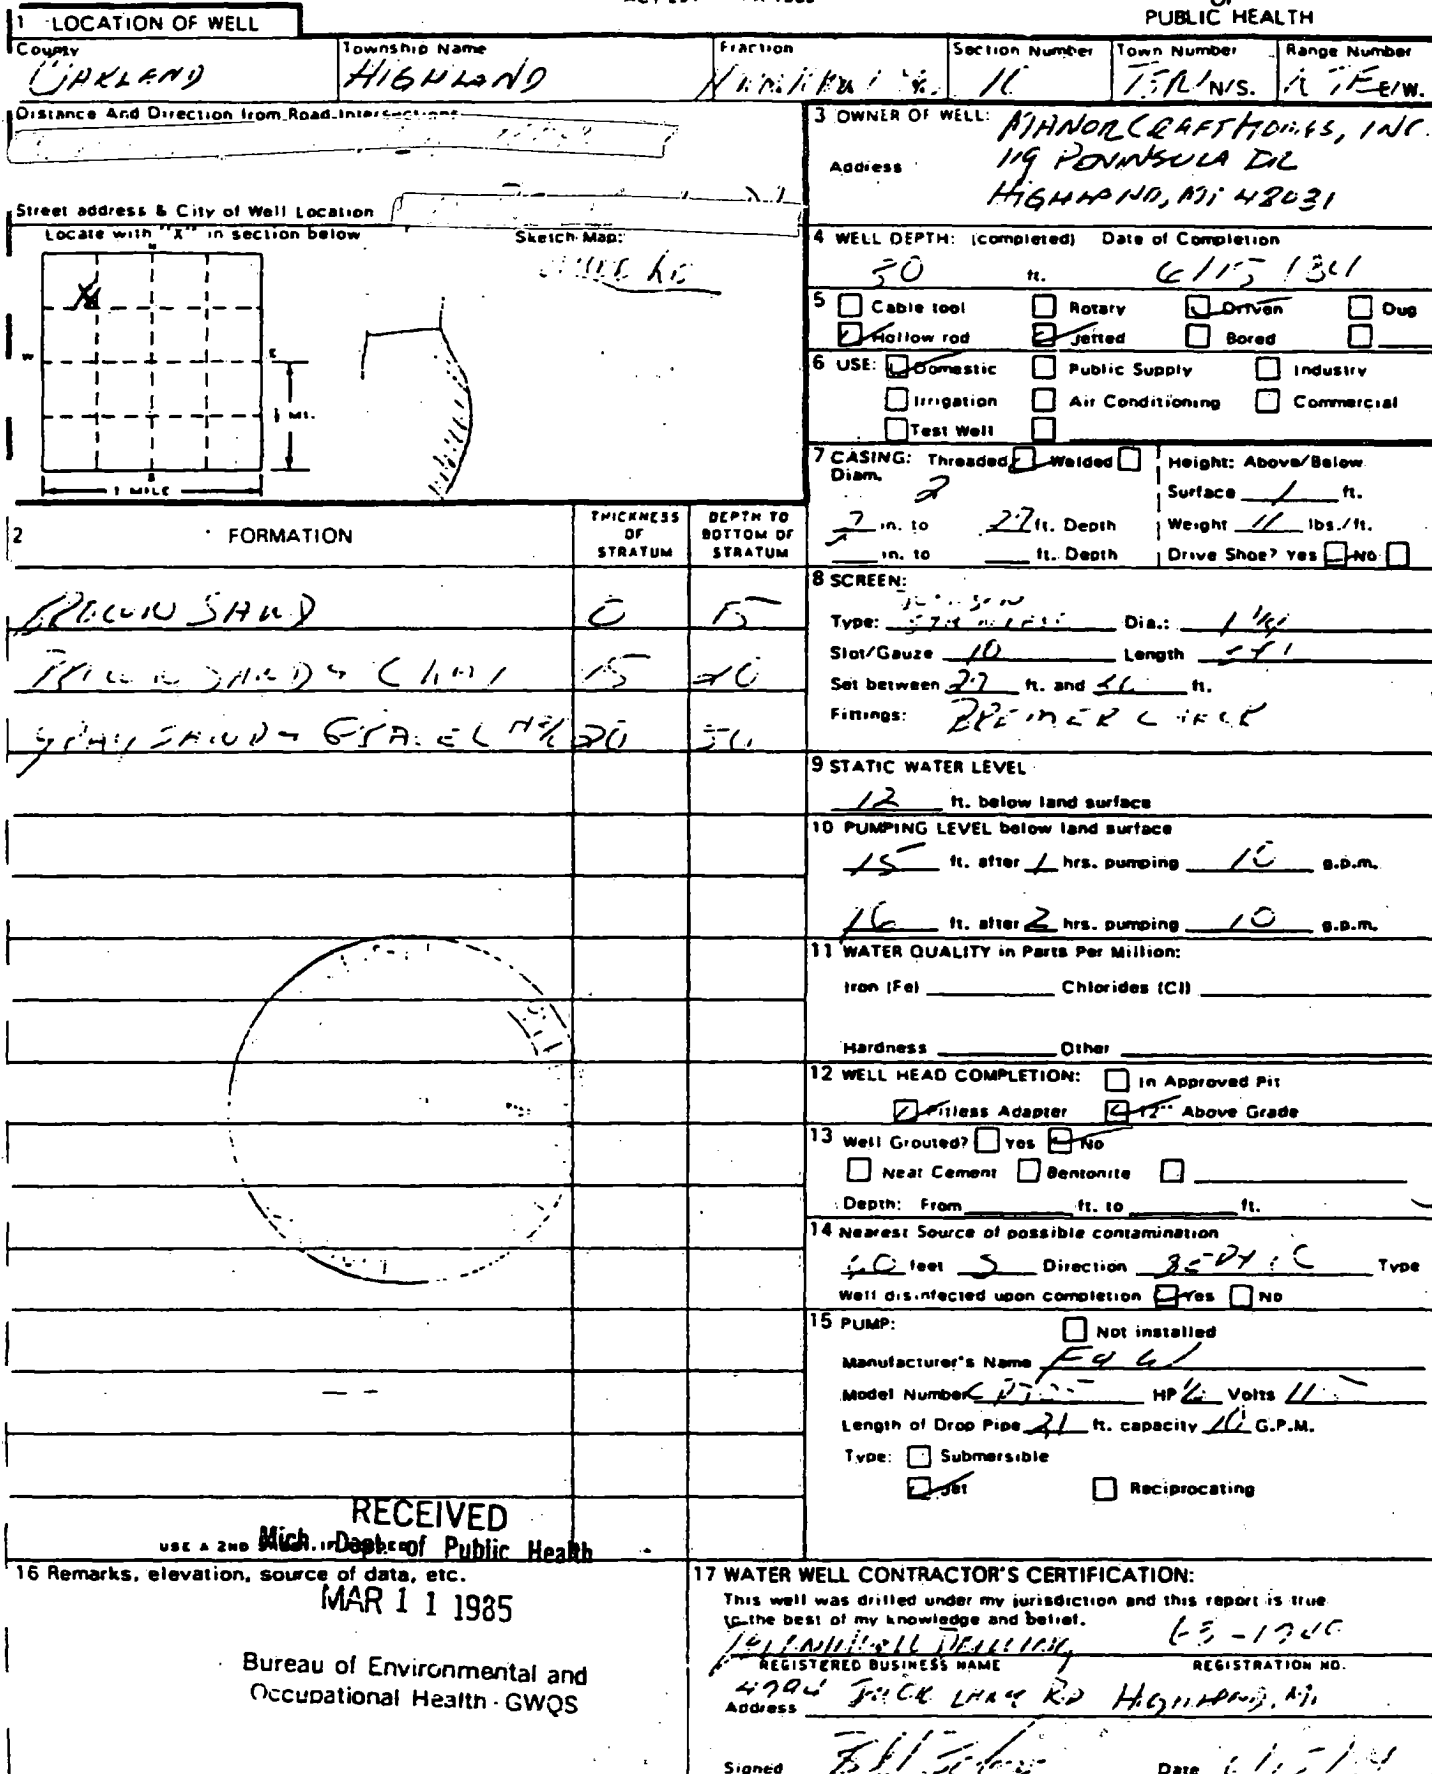 PUBLIC HEALTH
1 LOCATION OF WELL
County Township Name Fraction Section Number Town Number Range Number
OAKLAND HIGHLAND N/S. E/W.
Distance And Direction from Road Intersections
3 OWNER OF WELL: MANORCRAFT HOMES, INC.
Address 119 PENINSULA DR
HIGHLAND, Mi 48031
Street address & City of Well Location
Locate with "X" in section below Sketch Map:
N
X
W E
½ MI.
S
1 MILE
4 WELL DEPTH: (completed) Date of Completion
ft. 6/15/84
5 Cable tool Rotary Driven Dug
Hollow rod Jetted Bored
6 USE: Domestic Public Supply Industry
Irrigation Air Conditioning Commercial
Test Well
7 CASING: Threaded Welded Height: Above/Below
Diam.
2 Surface 1 ft.
2 in. to 27 ft. Depth Weight 11 lbs./ft.
in. to ft. Depth Drive Shoe? Yes No
2 FORMATION THICKNESS OF STRATUM DEPTH TO BOTTOM OF STRATUM
BROWN SAND 0 15
BROWN SAND & CLAY 15 20
GRAY SAND & 20
8 SCREEN:
Type: Dia.: 1 1/4
Slot/Gauze 10 Length
Set between 27 ft. and ft.
Fittings: CHECK
9 STATIC WATER LEVEL
12 ft. below land surface
10 PUMPING LEVEL below land surface
15 ft. after 1 hrs. pumping 10 g.p.m.
16 ft. after 2 hrs. pumping 10 g.p.m.
11 WATER QUALITY in Parts Per Million:
Iron (Fe) Chlorides (Cl)
Hardness Other
12 WELL HEAD COMPLETION: In Approved Pit
Pitless Adapter 12" Above Grade
13 Well Grouted? Yes No
Neat Cement Bentonite
Depth: From ft. to ft.
14 Nearest Source of possible contamination
feet S Direction SEPTIC Type
Well disinfected upon completion Yes No
15 PUMP: Not installed
Manufacturer's Name F & W
Model Number HP 1/2 Volts
Length of Drop Pipe 21 ft. capacity 10 G.P.M.
Type: Submersible
Jet Reciprocating
RECEIVED
USE A 2ND
Mich. Dept. of Public Health
16 Remarks, elevation, source of data, etc.
MAR 11 1985
Bureau of Environmental and
Occupational Health - GWQS
17 WATER WELL CONTRACTOR'S CERTIFICATION:
This well was drilled under my jurisdiction and this report is true
to the best of my knowledge and belief.
DRILLING
REGISTERED BUSINESS NAME REGISTRATION NO.
Address RD HIGHLAND, Mi
Signed Date